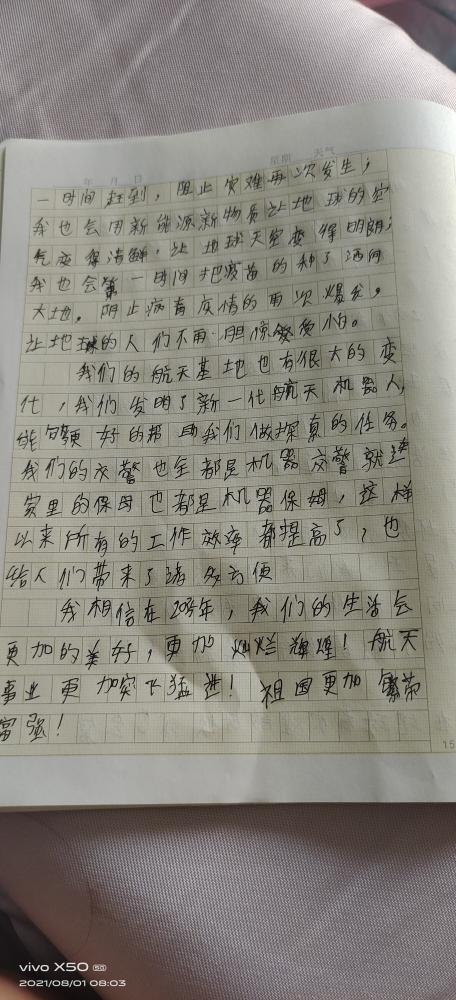 年 月 日 星期 天气
一时间赶到，阻止灾难再次发生；
我也会用新能源新物质让地球的空
气变得清鲜，让地球天空变得明朗；
我也会第一时间把疫苗的种子洒向
大地。阴止病毒疫情的再次爆发，
让地球的人们不再胆惊受怕。
我们的航天基地也有很大的变
化，我们发明了新一代航天机器人，
能够更好的帮助我们做探真的任务。
我们的交警也全都是机器交警就连
家里的保母也都是机器保姆，这样
以来所有的工作效率都提高了，也
给人们带来了诸多方便
我相信在20年，我们的生活会
更加的美好，更加灿烂辉煌！航天
事业更加突飞猛进！祖国更加繁荣
富强！
15
vivo X50 5G
2021/08/01 08:03